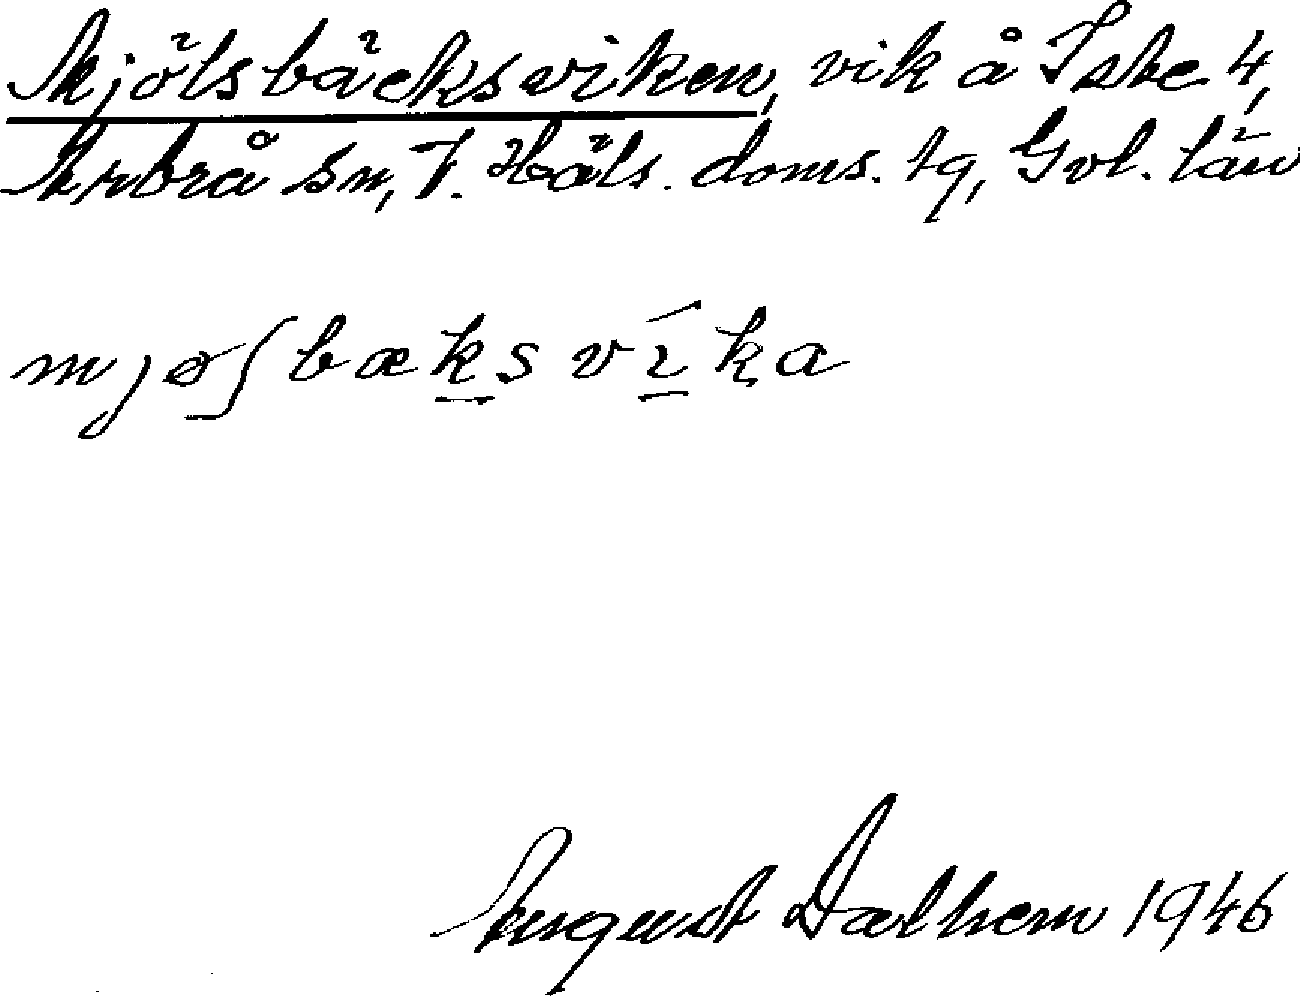 Mjölsbäcksviken, vik å Iste 4,
Arbrå sn, V. Häls. doms. tg, Gvl. län
mjøʃbæksvíka
August Dalhem 1946